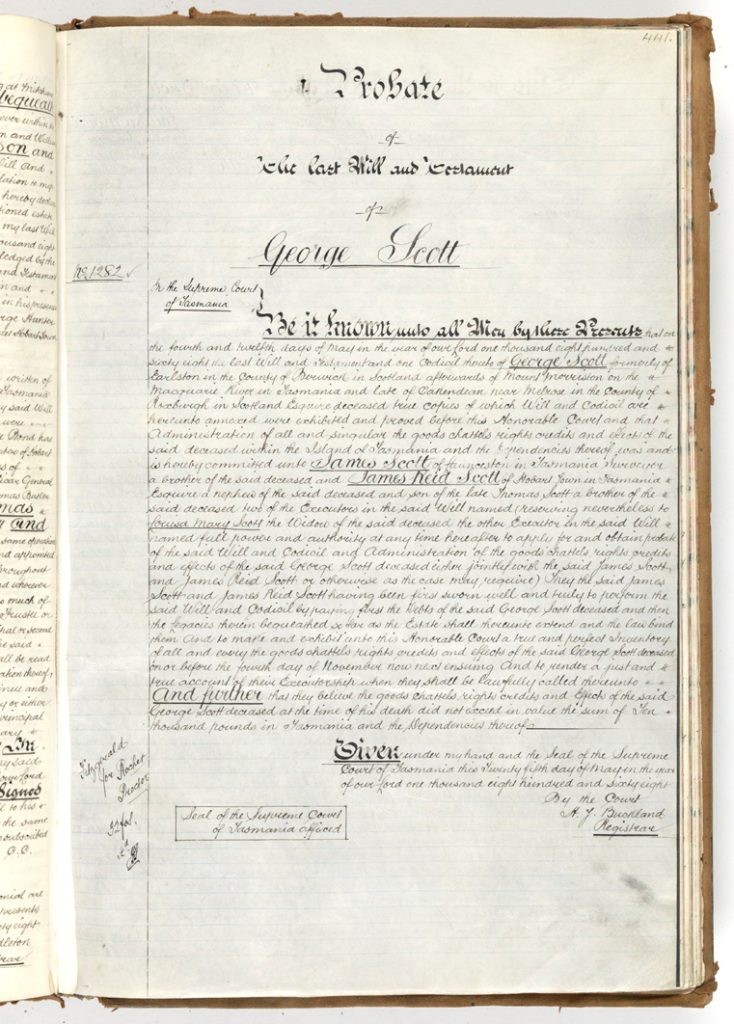 441.
Probate
of
The last Will and Testament
of
George Scott
No 1282
In the Supreme Court
of Tasmania
Be it known unto all Men by these Presents that on
the fourth and twelfth days of May in the year of our Lord one thousand eight hundred and
sixty eight the last Will and Testament and one Codicil thereto of George Scott formerly of
Earlston in the County of Berwick in Scotland afterwards of Mount Morriston on the
Macquarie River in Tasmania and late of Oakendean near Melrose in the County of
Roxburgh in Scotland Esquire deceased true copies of which Will and Codicil are
hereunto annexed were exhibited and proved before this Honorable Court and that
Administration of all and singular the goods chattels rights credits and effects of the
said deceased within the Island of Tasmania and the Dependencies thereof was and
is hereby committed unto James Scott of Launceston in Tasmania Surveyor
a brother of the said deceased and James Reid Scott of Hobart Town in Tasmania
Esquire a nephew of the said deceased and son of the late Thomas Scott a brother of the
said deceased two of the Executors in the said Will named (reserving nevertheless to
Mary Scott the Widow of the said deceased the other Executor in the said Will
named full power and authority at any time hereafter to apply for and obtain probate
of the said Will and Codicil and Administration of the goods chattels rights credits
and effects of the said George Scott deceased either jointly with the said James Scott
and James Reid Scott or otherwise as the case may require) They the said James
Scott and James Reid Scott having been first sworn well and truly to perform the
said Will and Codicil by paying first the Debts of the said George Scott deceased and then
the legacies therein bequeathed so far as the Estate shall thereunto extend and the law bind
them And to make and exhibit unto this Honorable Court a true and perfect Inventory
of all and every the goods chattels rights credits and effects of the said George Scott deceased
on or before the fourth day of November now next ensuing And to render a just and
true account of their Executorship when they shall be lawfully called thereunto
And further that they believe the goods chattels rights credits and Effects of the said
George Scott deceased at the time of his death did not exceed in value the sum of Ten
thousand pounds in Tasmania and the Dependencies thereof
Given under my hand and the Seal of the Supreme
Court of Tasmania this Twenty fifth day of May in the year
of our Lord one thousand eight hundred and sixty eight
By the Court
Registrar
Fitzgerald
for Rocher
Proctor
32 fol.
Seal of the Supreme Court
of Tasmania affixed